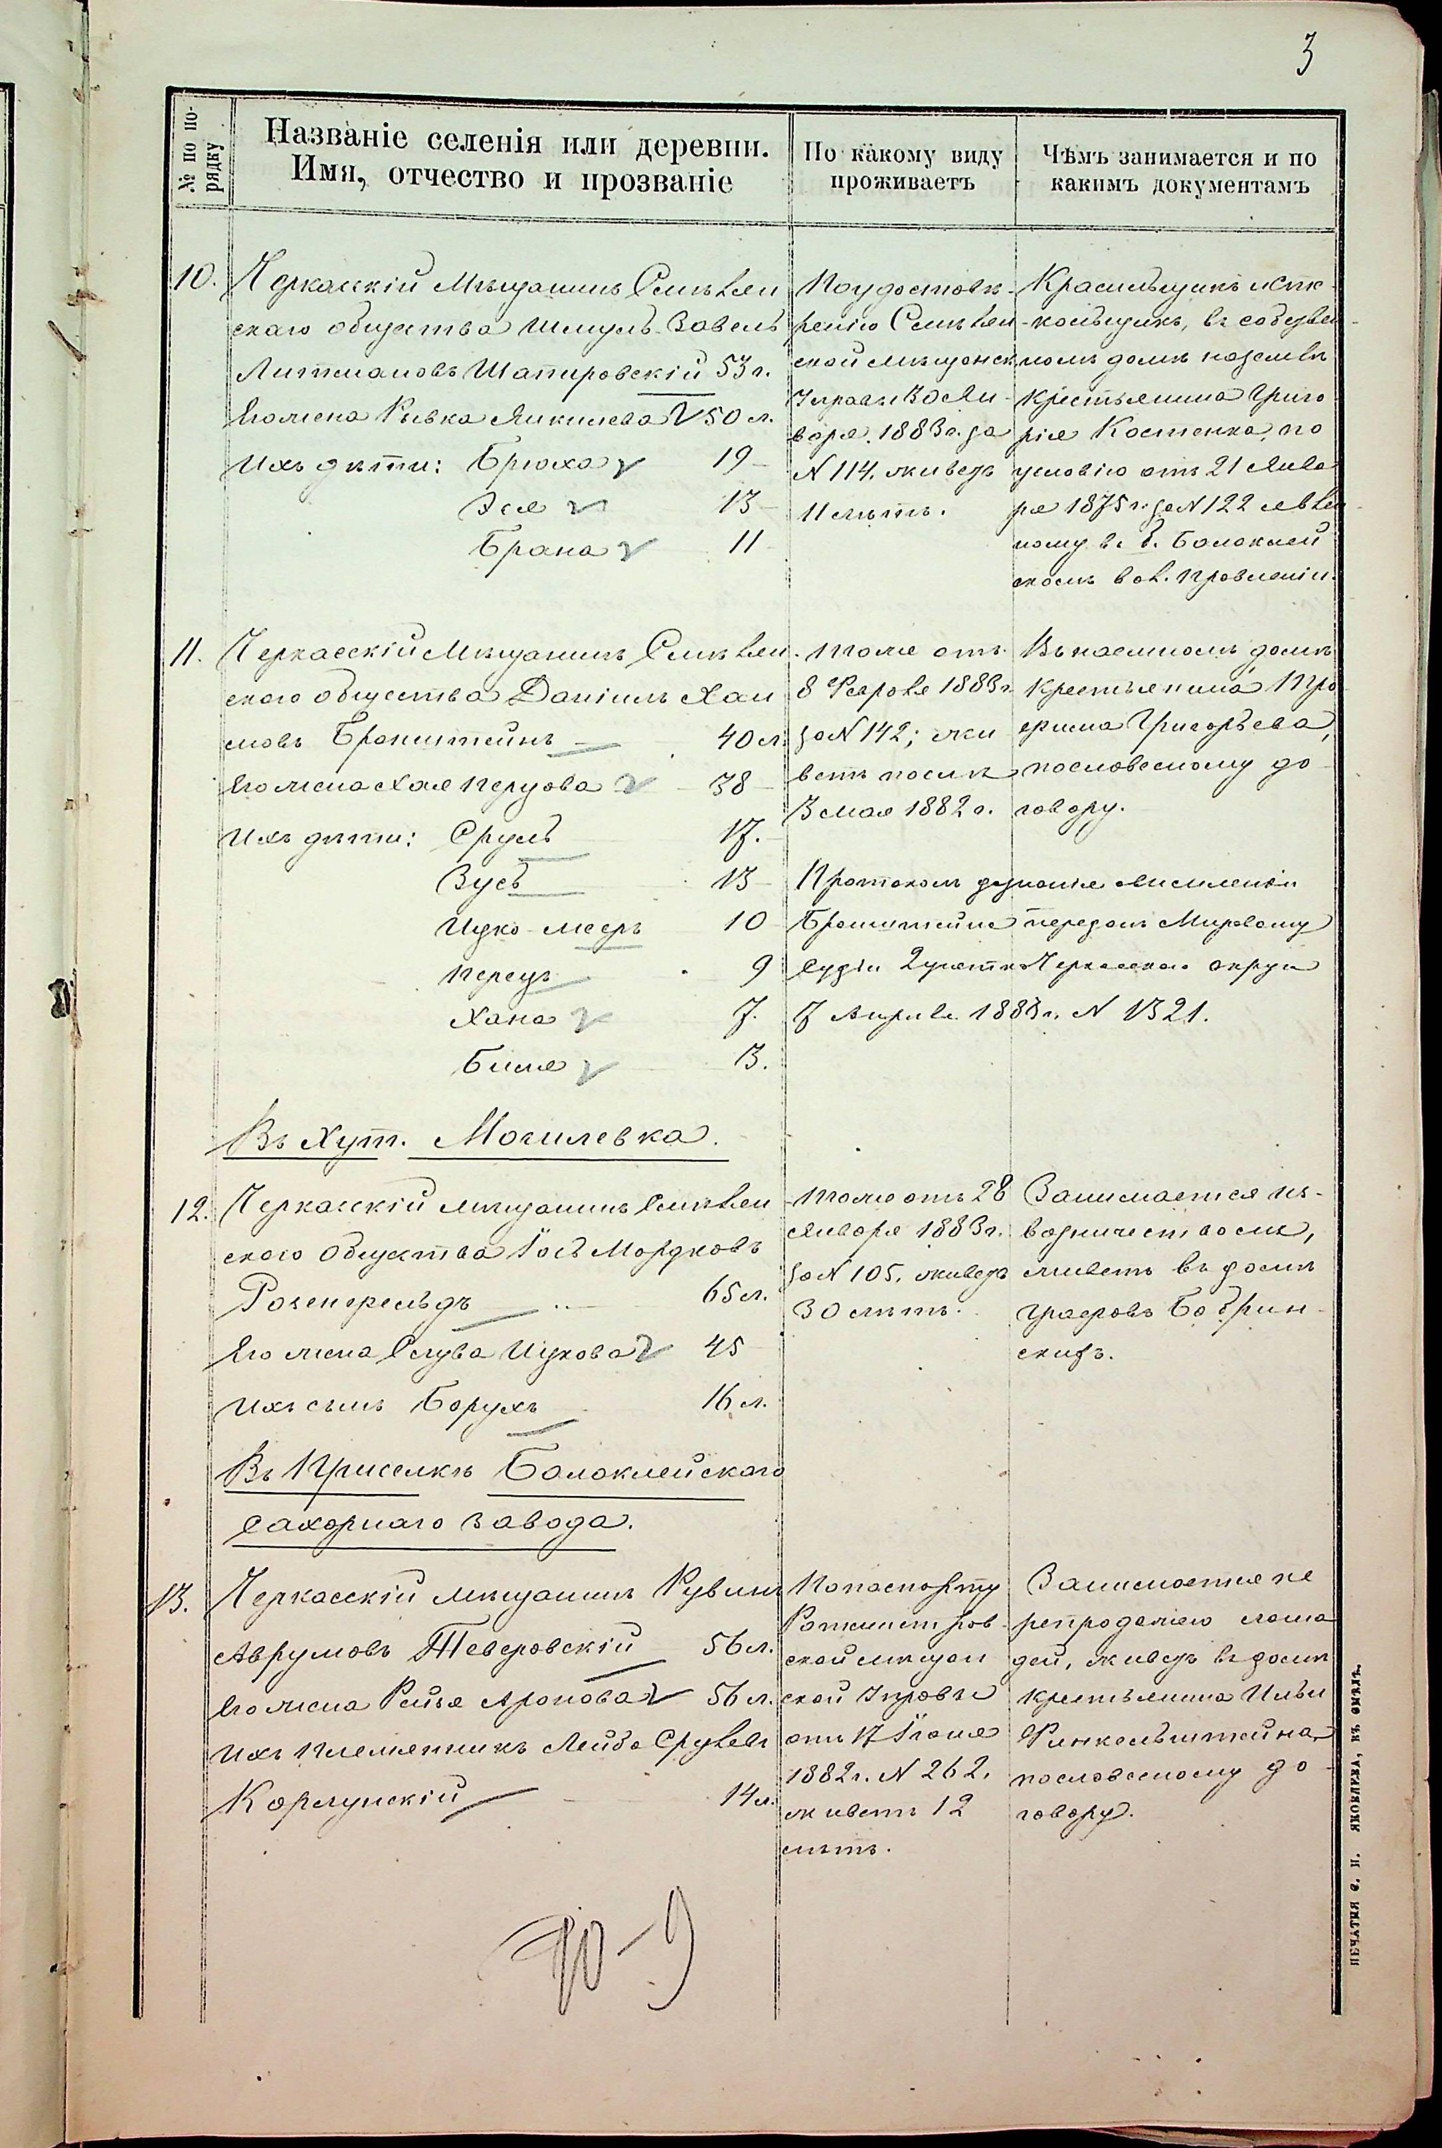 3
№ по по-
рядку
Названіе селенія или деревни.
Имя, отчество и прозваніе
По какому виду
проживаетъ
Чѣмъ занимается и по
какимъ документамъ
10.
Черкасскій Мѣщанинъ Смѣлян
скаго общества Шмуль-Вавель
Литмановъ Шапировскій 53 г.
Его жена Рывка Янкилева 50 л.
Ихъ дѣти: Брюха 19
Эся 13
Брана 11
По удостовѣ-
ренію Смѣлян
ской мѣщанск.
Управы 30 Ян-
варя 1883 г. за
№ 114. живетъ
11 лѣтъ.
Красильщикъ
въ собствен
номъ домѣ на землѣ
крестьянина Григо
рія Костенка, по
условію отъ 21 Янва
ря 1875 г. за № 122 явлен
ному въ б. Балаклей
скомъ вол. правленіи.
11.
Черкасскій Мѣщанинъ Смѣлян
скаго общества Даніилъ Хаи
мовъ Бронштейнъ 40 л.
Его жена Хая Перцова 38
Ихъ дѣти: Сруль 17.
Зусь 13
Ицко-Мееръ 10
Перецъ 9
Хана 7.
Бися 3.
тоже отъ
8 Февраля 1883 г.
за № 142; жи
ветъ послѣ
3 мая 1882 г.
Въ наемномъ домѣ
крестьянина Тро
фима Григорьева,
по словесному до
говору.
Протоколъ дознанія
Бронштейна переданъ Мировому
Судіи 2 участка Черкасскаго округа
7 Апрѣля 1883 г. № 1321.
Въ Хут. Могилевка.
12.
Черкасскій мѣщанинъ Смѣлян
скаго Общества Іось Мордковъ
Розенфельдъ 65 л.
Его жена Слува Ицкова 45
Ихъ сынъ Борухъ 16 л.
тоже отъ 28
Января 1883 г.
за № 105, живетъ
30 лѣтъ.
Занимается из-
возничествомъ,
живетъ въ домѣ
графовъ Бобрин-
скихъ.
Въ Приселкѣ Балаклейскаго
сахарнаго завода.
13.
Черкасскій мѣщанинъ Рувинъ
Аврумовъ Тевировскій 56 л.
Его жена Рейзя Аронова 56 л.
Ихъ племянникъ Лейба Срулевъ
Корсунскій 14 л.
По паспорту
Ротмистров
ской мѣщан
ской Управы
отъ 17 Іюня
1882 г. № 262.
живетъ 12
лѣтъ.
Занимается пе
репродажею лоша
дей, живетъ въ домѣ
крестьянина Ильи
Финкельштейна
по словесному до
говору.
10-9
ПЕЧАТНЯ С. И. ЯКОВЛЕВА, ВЪ СМѢЛѢ.